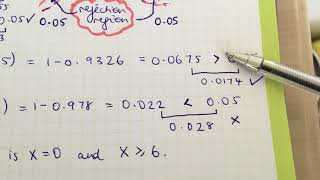 rejection
region
0.05 ✓ 0.05 0.05
5) = 1-0.9326 = 0.0675 > 0
0.0174 ✓
) = 1-0.978 = 0.022 < 0.05
0.028 x
is X=0 and X ⩾ 6.